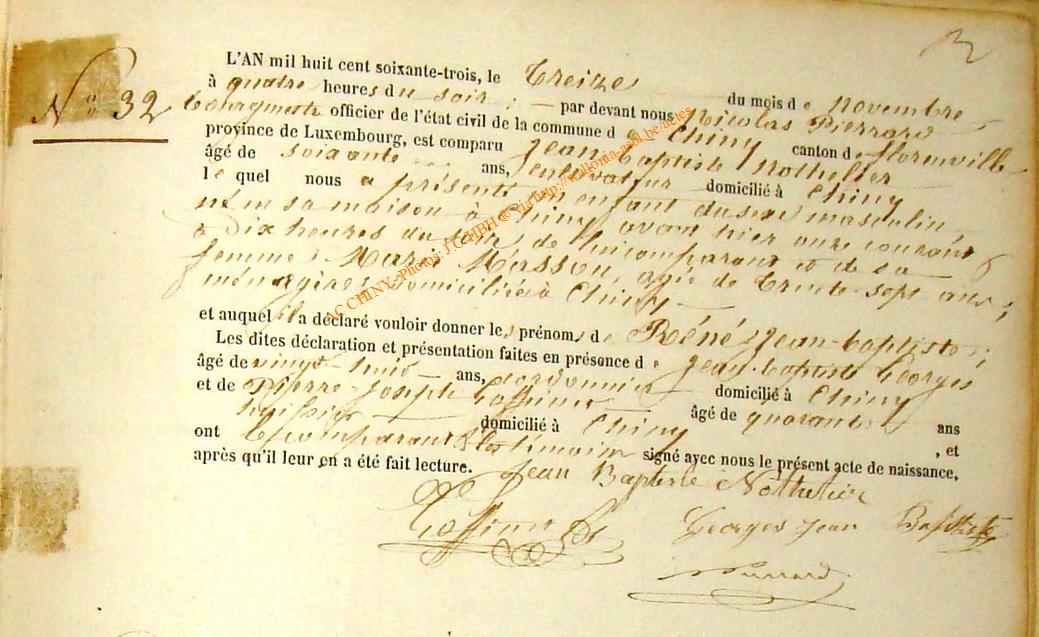 N° 32
L'AN mil huit cent soixante-trois, le Treize du mois de novembre
à quatre heures du soir : par devant nous Nicolas Pierrard
bourgmestre officier de l'état civil de la commune de Chiny canton de florenville
province de Luxembourg, est comparu Jean-baptiste Nothelier
âgé de soixante ans, cultivateur domicilié à Chiny
lequel nous a présenté un enfant du sexe masculin
né en sa maison à Chiny avant hier onze courant
à Dix heures du soir, de lui comparant et de sa
femme Marie Masson, agée de Trente-sept ans,
ménagère, domiciliée à Chiny
et auquel il a déclaré vouloir donner les prénoms de Réné Jean-baptiste ;
Les dites déclaration et présentation faites en présence de Jean-baptiste Georges
âgé de vingt-huit ans, cordonnier domicilié à Chiny
et de Pierre-Joseph âgé de quarante ans
huissier domicilié à Chiny , et
ont le comparant & les témoins signé avec nous le présent acte de naissance,
après qu'il leur en a été fait lecture. Jean Baptiste Nothelier
Georges Jean Baptiste
Pierrard
AC CHINY - Photos: J C HBH © via http://wallonia-asbl.be/actes